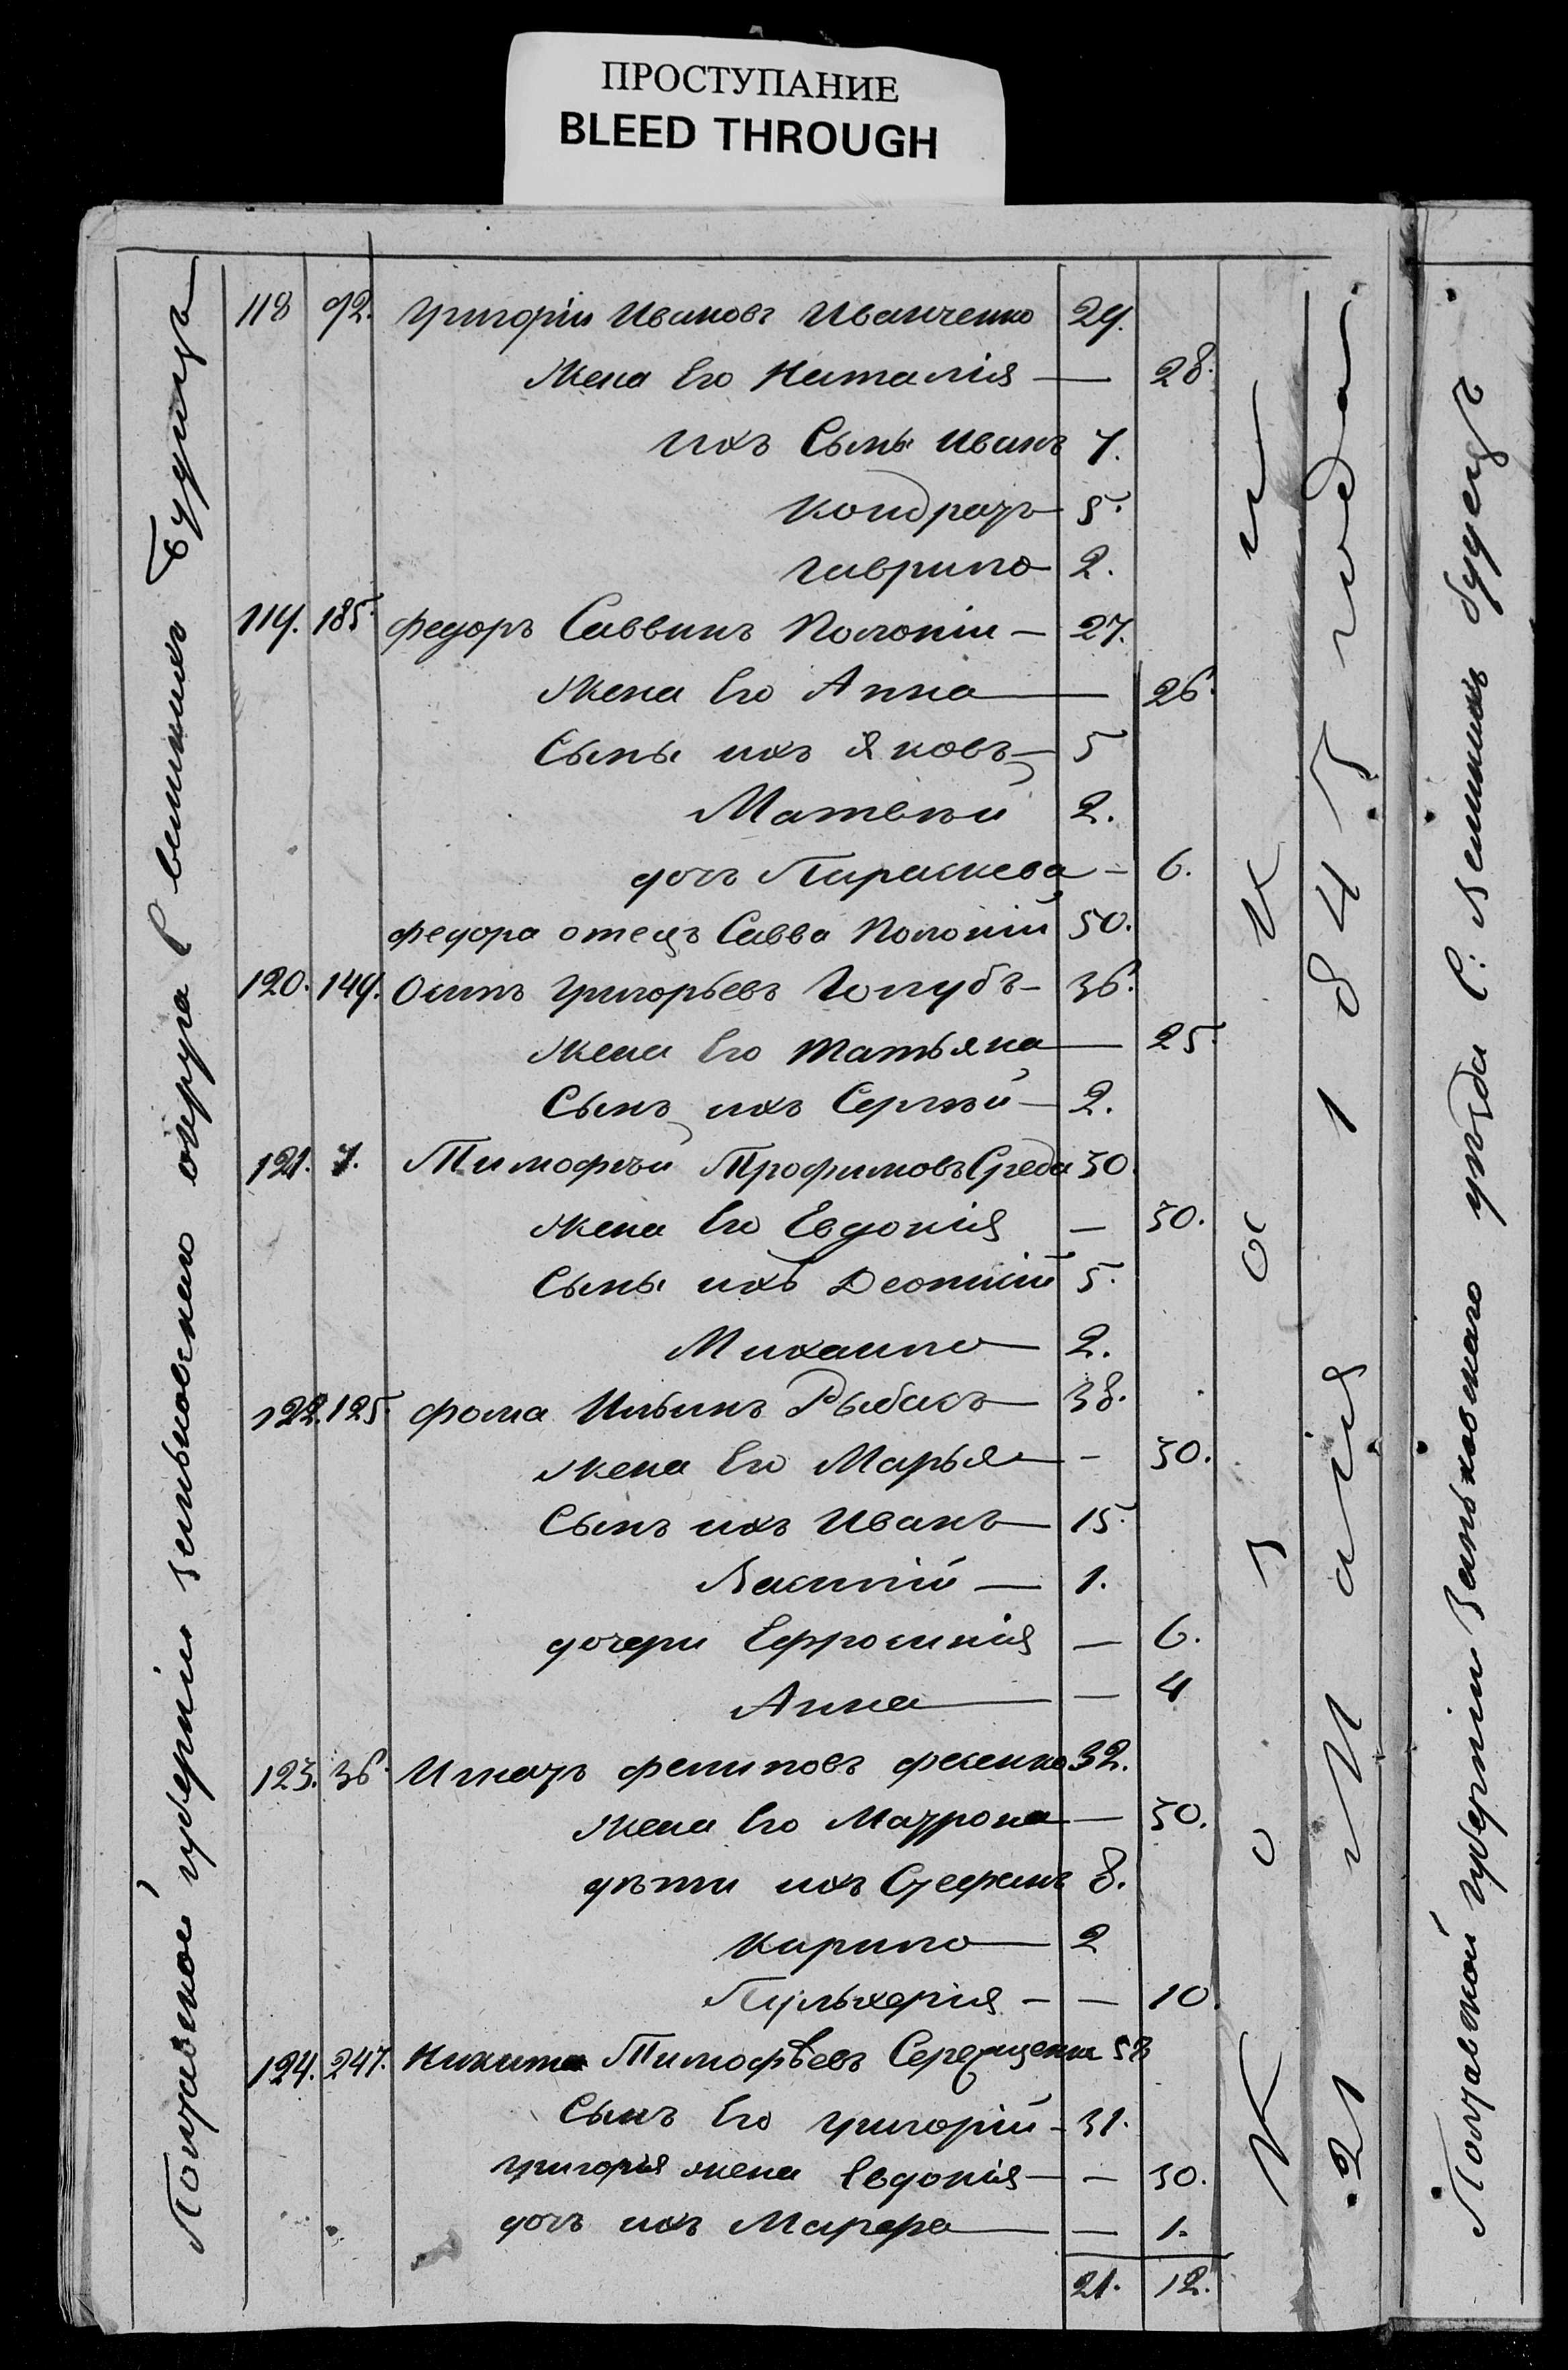 ПРОСТУПАНИЕ
BLEED THROUGH
Полтавской губерніи Зеньковскаго округа С великихъ Будищъ
118 92. Григорій Ивановъ Иванченко 29.
Жена Его Наталія — 28.
ихъ Сыны Иванъ 7.
Кондратъ 5.
Гаврило 2.
119. 185. Федоръ Саввинъ Полопій — 27.
Жена Его Анна — 26.
Сыны ихъ Яковъ — 5
Матвѣй 2.
дочъ Параскева — 6.
Федора отецъ Савва Полопій 50.
120. 149. Осипъ Григорьевъ Голубъ — 36.
Жена Его Татьяна — 25.
Сынъ ихъ Сергѣй — 2.
121. 7. Тимофѣй Трофимовъ Среда 30.
Жена Его Евдокія — 30.
Сыны ихъ Леонтій 5.
Михаило 2.
122. 125. Фома Ильинъ Рыбасъ 38.
Жена Его Марья — 30.
Сынъ ихъ Иванъ 15.
Василій — 1.
дочери Ефросинія — 6.
Анна — 4
123. 36. Игнатъ Филиповъ Фесенко 32.
Жена Его Матрона — 30.
дѣти ихъ Стефанъ 8.
Кирило 2
Пулхерія — — 10.
124. 247. Никита Тимофѣевъ 58
Сынъ Его Григорій — 31.
Григорія жена Евдокія — — 30.
дочъ ихъ Марфа — 1.
21. 12.
К о з а к и
21 Мая 1845 года.
Полтавской губерніи Зеньковскаго уѣзда С: великихъ будищъ